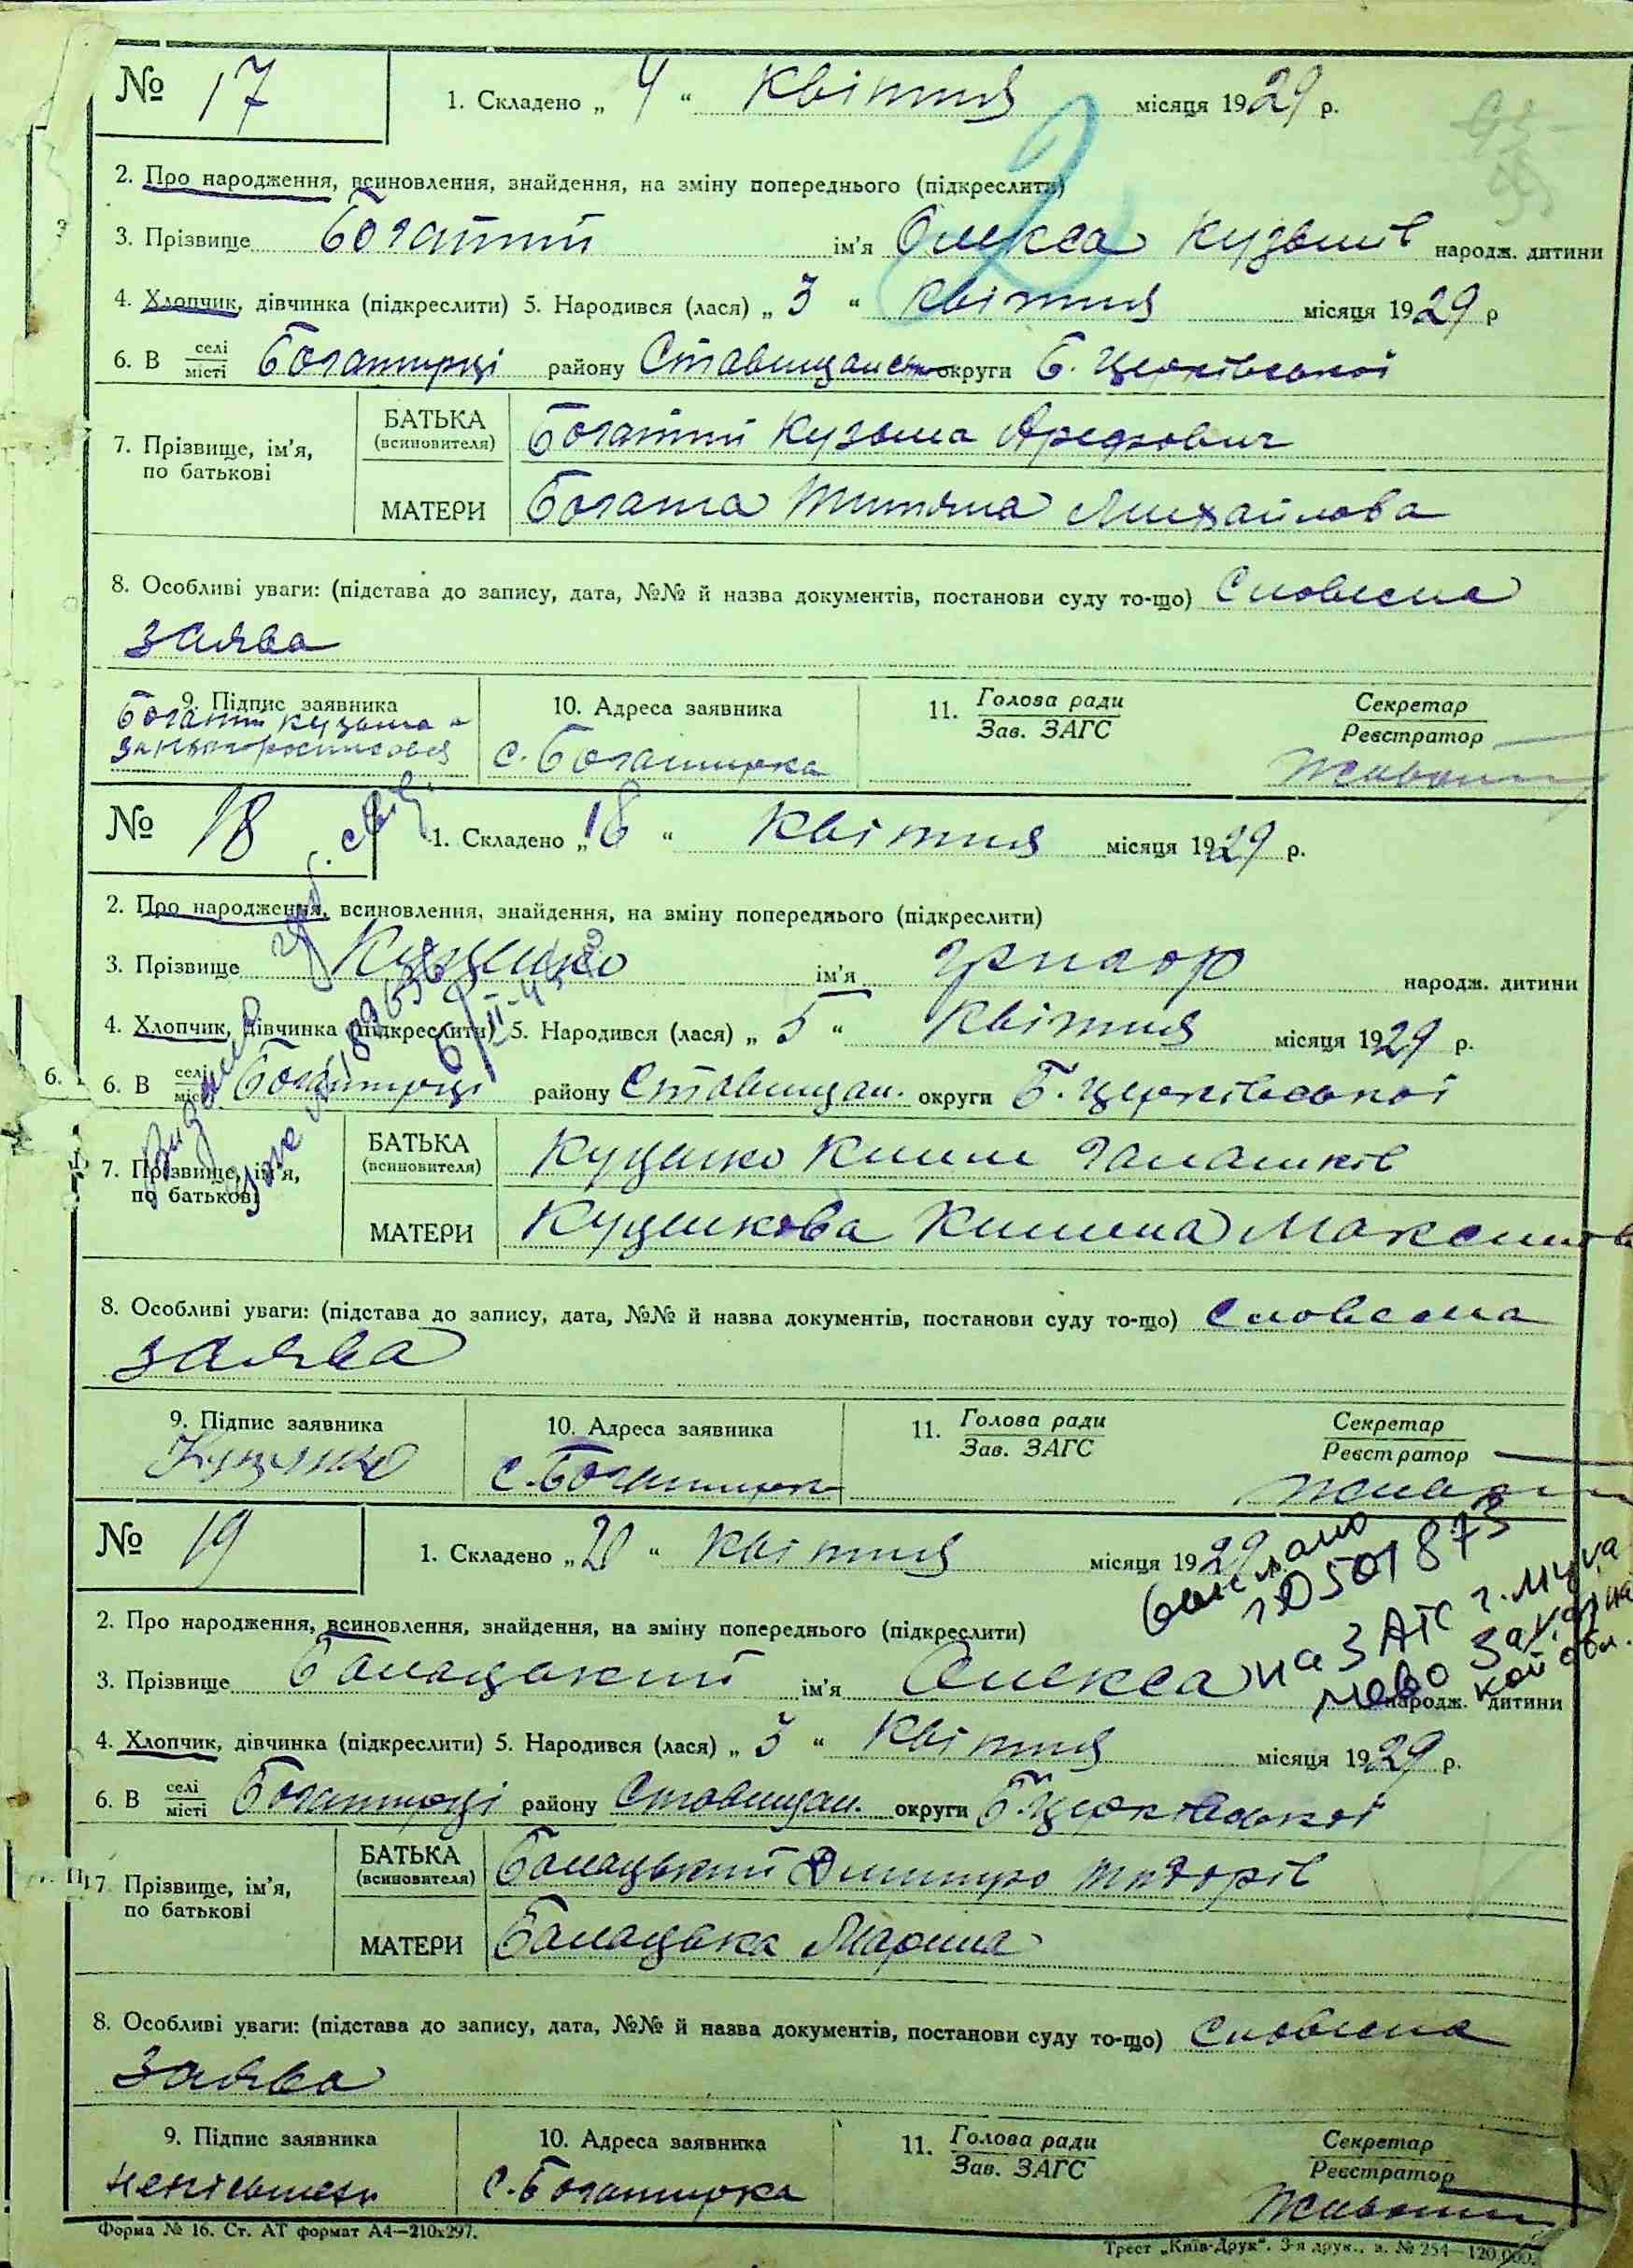 № 17
1. Складено „ 4 “ Квітня місяця 1929 р.
2. Про народження, всиновлення, знайдення, на зміну попереднього (підкреслити)
3. Прізвище Богатий ім'я Олекса Кузьмів народж. дитини
4. Хлопчик, дівчинка (підкреслити) 5. Народився (лася) „ 3 “ Квітня місяця 1929 р
6. В селі місті Богатирці району Ставищанськ округи Б. Церківської
7. Прізвище, ім'я, по батькові
БАТЬКА (всиновителя) Богатий Кузьма Арефович
МАТЕРИ Богата Титяна Михайлова
8. Особливі уваги: (підстава до запису, дата, №№ й назва документів, постанови суду то-що) Словесна
заява
9. Підпис заявника
10. Адреса заявника
11. Голова ради Зав. ЗАГС
Секретар Реєстратор
Богатий Кузьма а
за нього росписався
с. Богатирка
№ 18
1. Складено „ 18 “ Квітня місяця 1929 р.
2. Про народження, всиновлення, знайдення, на зміну попереднього (підкреслити)
3. Прізвище Куценко ім'я Григор народж. дитини
4. Хлопчик, дівчинка (підкреслити) 5. Народився (лася) „ 5 “ Квітня місяця 1929 р.
6. В селі місті Богатирці району Ставищан. округи Б. Церківської
7. Прізвище, ім'я, по батькові
БАТЬКА (всиновителя) Куценко Клим
МАТЕРИ Куценкова Килина Максимів
8. Особливі уваги: (підстава до запису, дата, №№ й назва документів, постанови суду то-що) Словесна
заява
9. Підпис заявника
10. Адреса заявника
11. Голова ради Зав. ЗАГС
Секретар Реєстратор
Куценко
с. Богатирка
№ 19
1. Складено „ 20 “ Квітня місяця 1929
2. Про народження, всиновлення, знайдення, на зміну попереднього (підкреслити)
3. Прізвище Балацький ім'я Олекса народж. дитини
выслано
501873
на ЗАГС г. Мука
чево Закарпат
кой обл.
4. Хлопчик, дівчинка (підкреслити) 5. Народився (лася) „ 3 “ Квітня місяця 1929 р.
6. В селі місті Богатирці району Ставищан. округи Б. Церківської
7. Прізвище, ім'я, по батькові
БАТЬКА (всиновителя) Балацький Дмитро Тодорів
МАТЕРИ Балацька Марина
8. Особливі уваги: (підстава до запису, дата, №№ й назва документів, постанови суду то-що) Словесна
заява
9. Підпис заявника
10. Адреса заявника
11. Голова ради Зав. ЗАГС
Секретар Реєстратор
с. Богатирка
Форма № 16. Ст. АТ формат А4—210х297.
Трест „Київ-Друк“. 3-я друк., з. № 254—120.000.